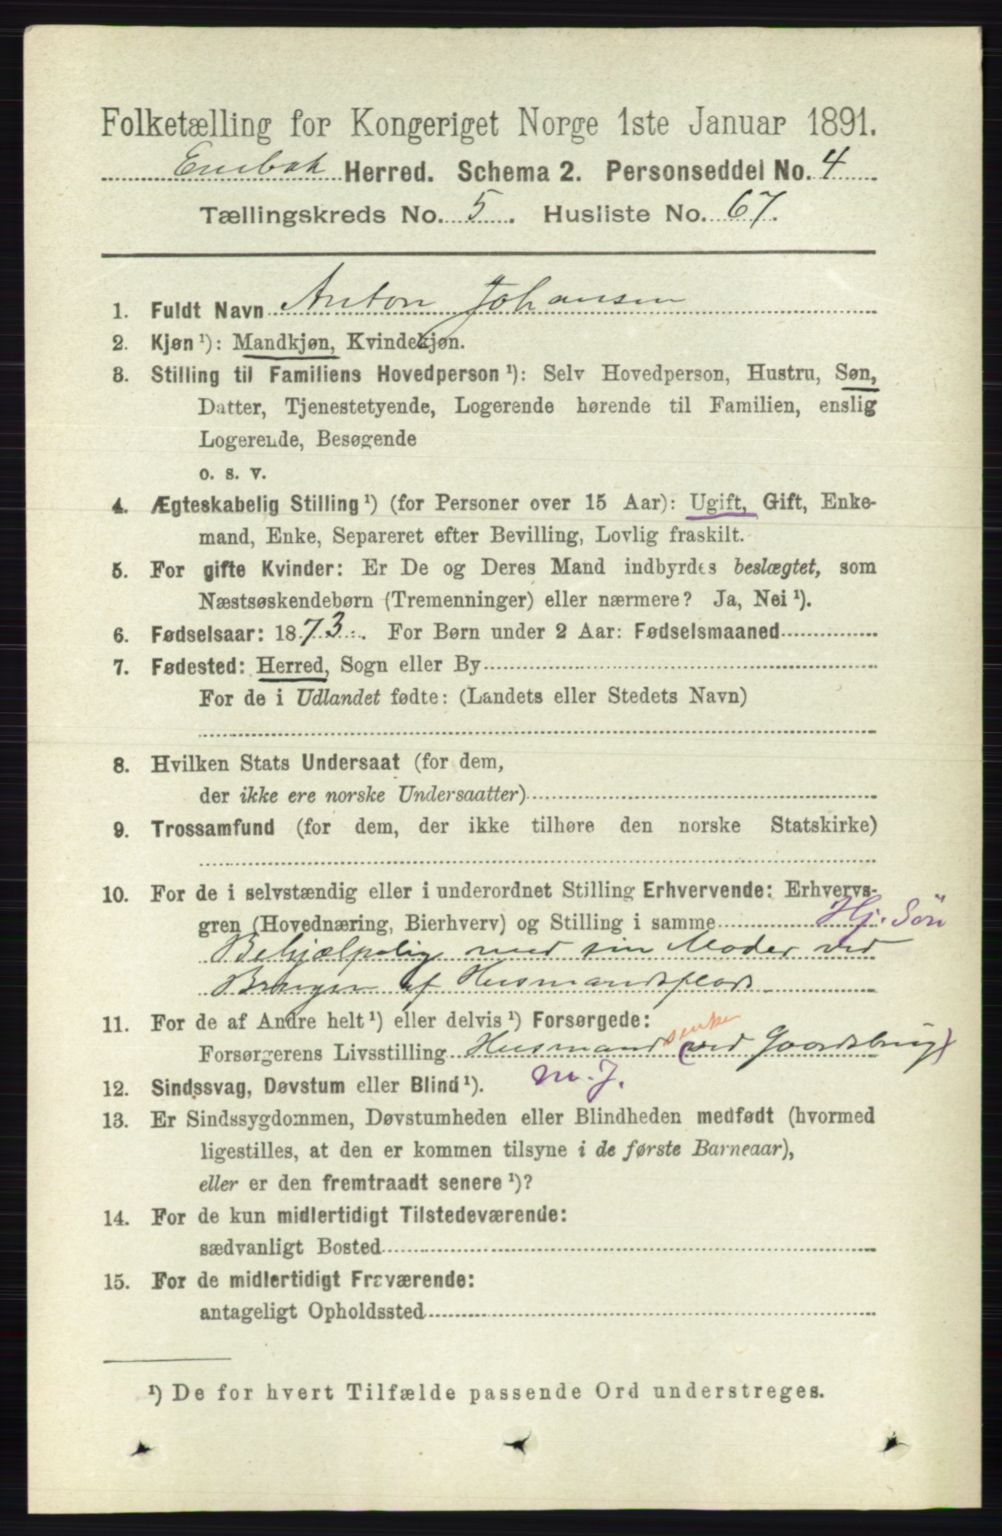 Folketælling for Kongeriget Norge 1ste Januar 1891.
Enebak Herred. Schema 2. Personseddel No. 4
Tællingskreds No. 5. Husliste No. 67.
1. Fuldt Navn Anton Johansen
2. Kjøn ¹): Mandkjøn, Kvindekjøn.
3. Stilling til Familiens Hovedperson ¹): Selv Hovedperson, Hustru, Søn,
Datter, Tjenestetyende, Logerende hørende til Familien, enslig
Logerende, Besøgende
o. s. v.
4. Ægteskabelig Stilling ¹) (for Personer over 15 Aar): Ugift, Gift, Enke-
mand, Enke, Separeret efter Bevilling, Lovlig fraskilt.
5. For gifte Kvinder: Er De og Deres Mand indbyrdes beslægtet, som
Næstsøskendebørn (Tremenninger) eller nærmere? Ja, Nei ¹).
6. Fødselsaar: 1873. For Børn under 2 Aar: Fødselsmaaned
7. Fødested: Herred, Sogn eller By
For de i Udlandet fødte: (Landets eller Stedets Navn)
8. Hvilken Stats Undersaat (for dem,
der ikke ere norske Undersaatter)
9. Trossamfund (for dem, der ikke tilhøre den norske Statskirke)
10. For de i selvstændig eller i underordnet Stilling Erhvervende: Erhvervs-
gren (Hovednæring, Bierhverv) og Stilling i samme Hj. Søn
Behjælpelig med sin Moder ved
Brugen af Husmandsplads
11. For de af Andre helt ¹) eller delvis ¹) Forsørgede:
Forsørgerens Livsstilling Husmands enke (ved Gaardsbrug)
12. Sindssvag, Døvstum eller Blind ¹). m. J.
13. Er Sindssygdommen, Døvstumheden eller Blindheden medfødt (hvormed
ligestilles, at den er kommen tilsyne i de første Barneaar),
eller er den fremtraadt senere ¹)?
14. For de kun midlertidigt Tilstedeværende:
sædvanligt Bosted
15. For de midlertidigt Fraværende:
antageligt Opholdssted
¹) De for hvert Tilfælde passende Ord understreges.